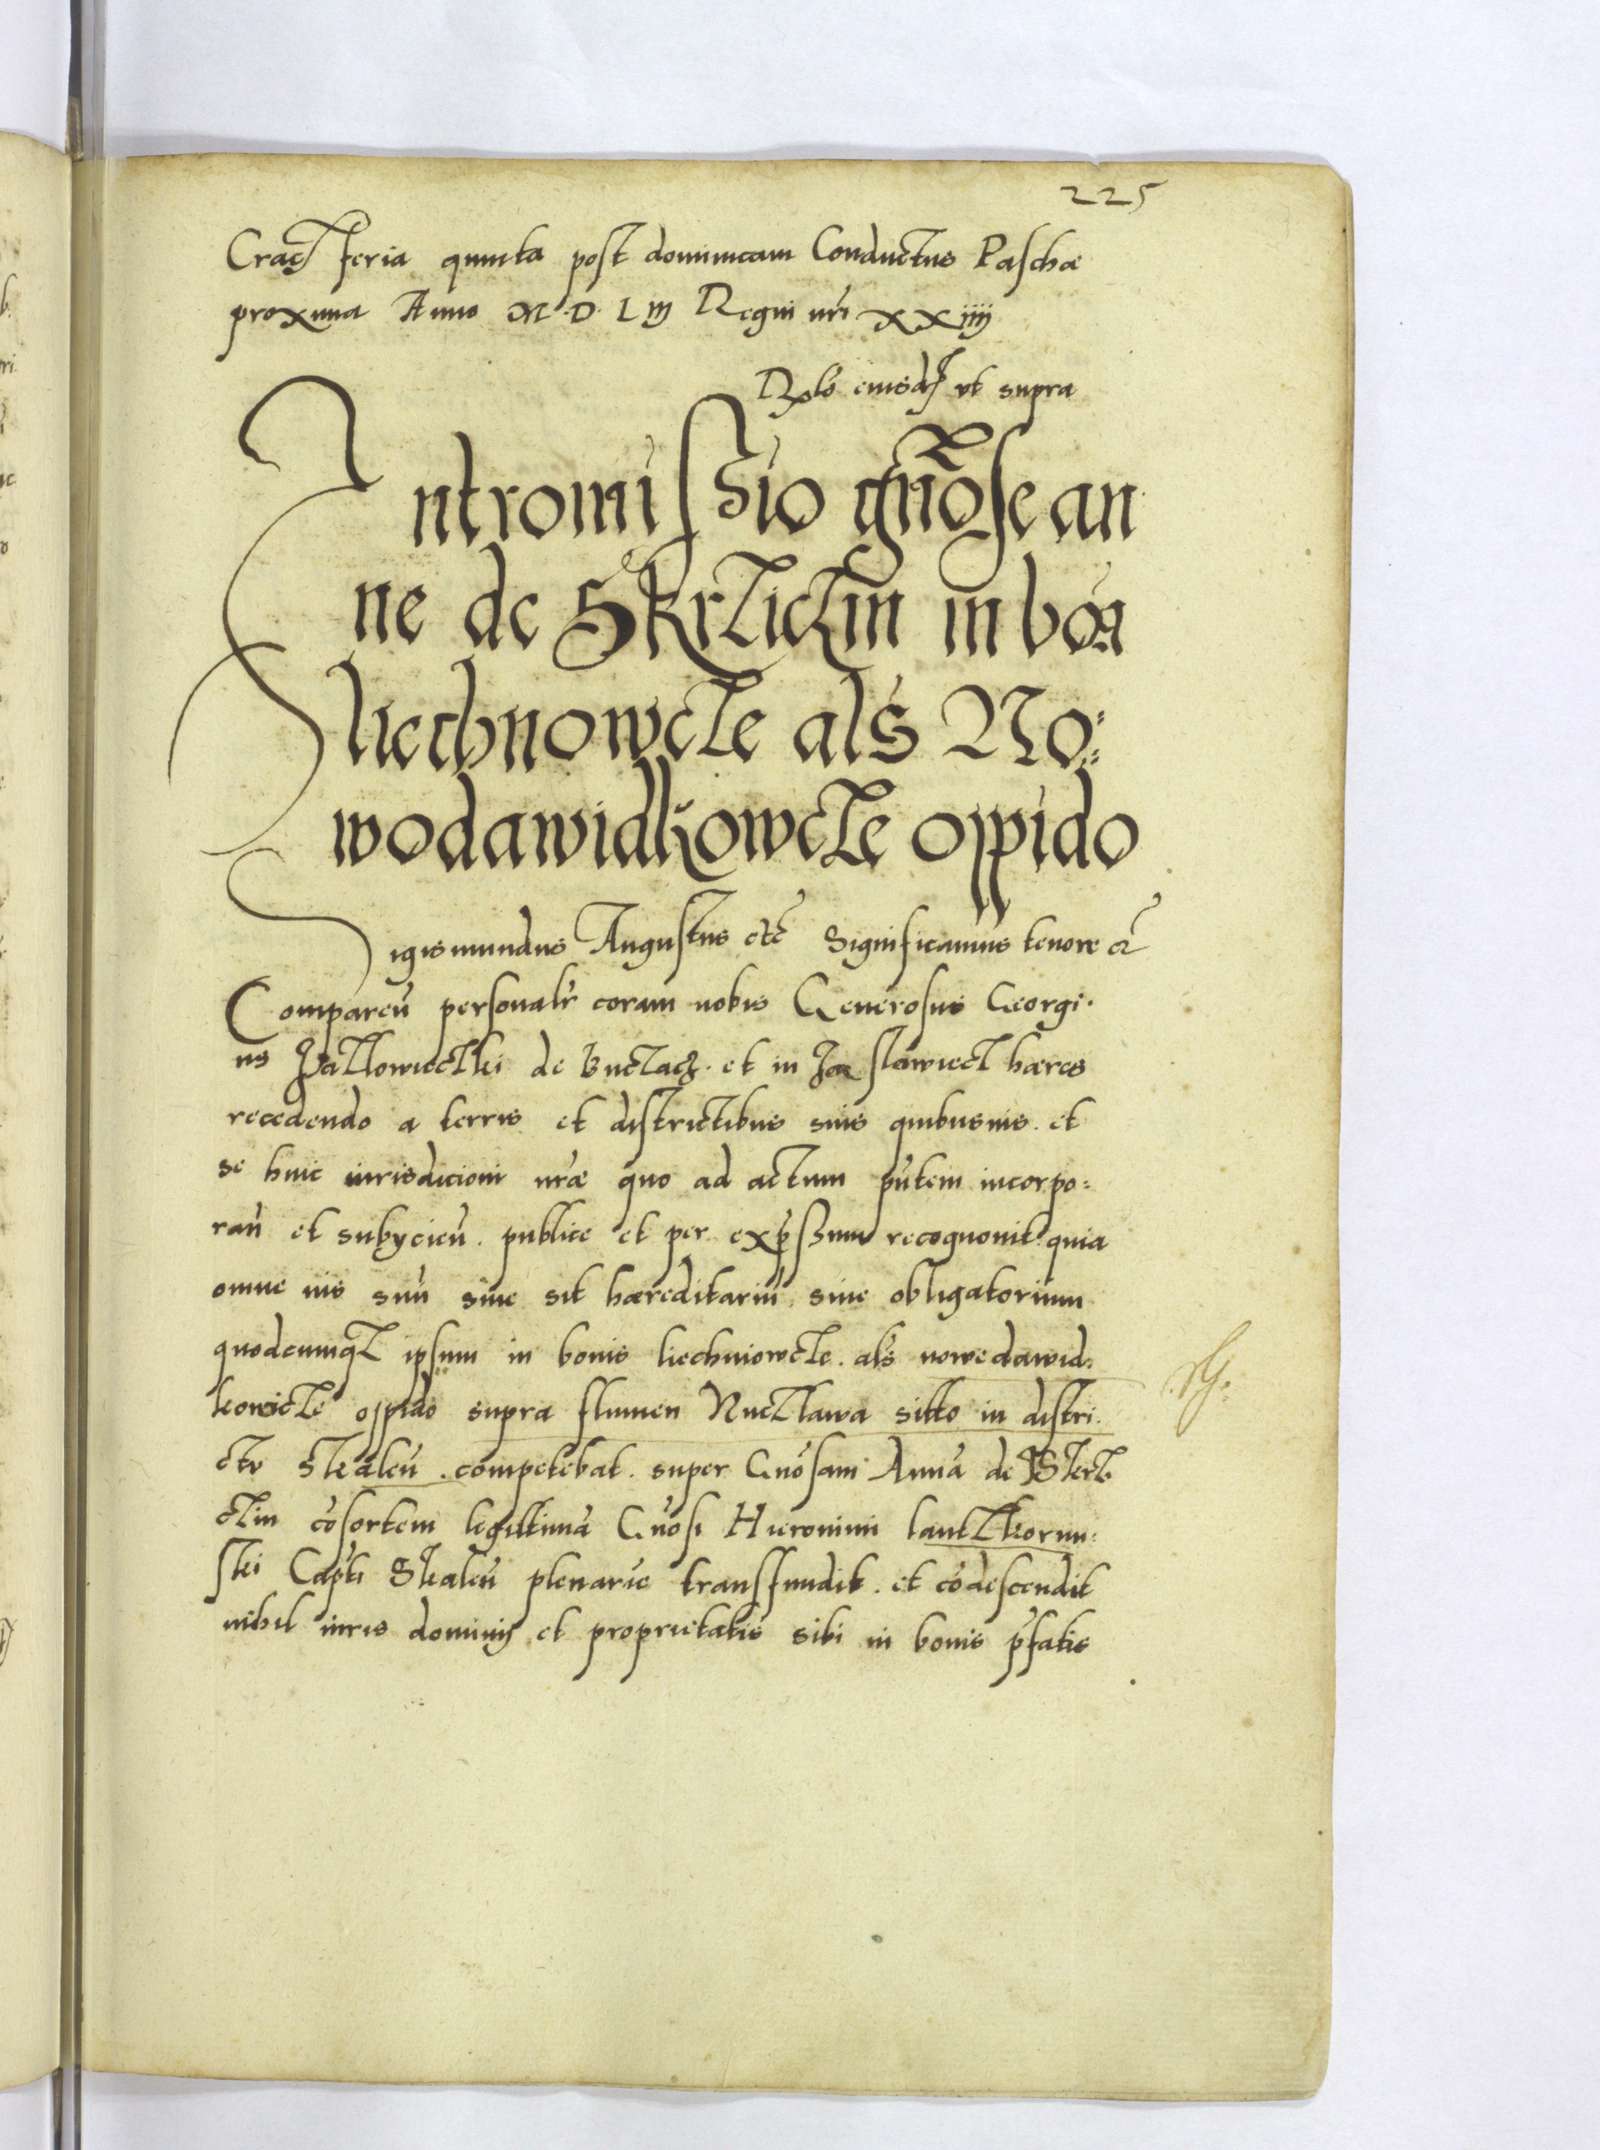 225
Cracz feria quinta post dominicam Conductus Paschæ
proxima Anno M.D.LIII Regni nri XXIIII
Rlo eiusdz ut supra
Intromissio gnose an
ne de Skrziczin in boa
liechnowcze als No:
wodawidkowcze oppido
Sigismundus Augustus etc Significamus tenore etc
Compareñ personalr coram nobis Generosus Georgi.
us Jazlowieczki de Buczacz. et in Jaslawiecz hæres
recedendo a terris et districtibus suis quibusuis. et
se huic iurisdicioni nræ quo ad actum pñtem incorpo:
rañ et subycieñ. publice et per expssum recognouit quia
omne ius suũ siue sit hæreditariũ, siue obligatorium
quodcumqz ipsum in bonis liechniowcze. als nowedawid:
kowicze oppido supra flumen Niczlawa sitto in distri.
ctu skaleñ. competebat. super Gnosam Annã de
czin cõsortem legittimã Gnosi Hieronimi lanczkorun:
ski Capti Skaleñ plenarie transfundit. et cõdescendit
nihil iuris dominij et proprietatis sibi in bonis pfatis